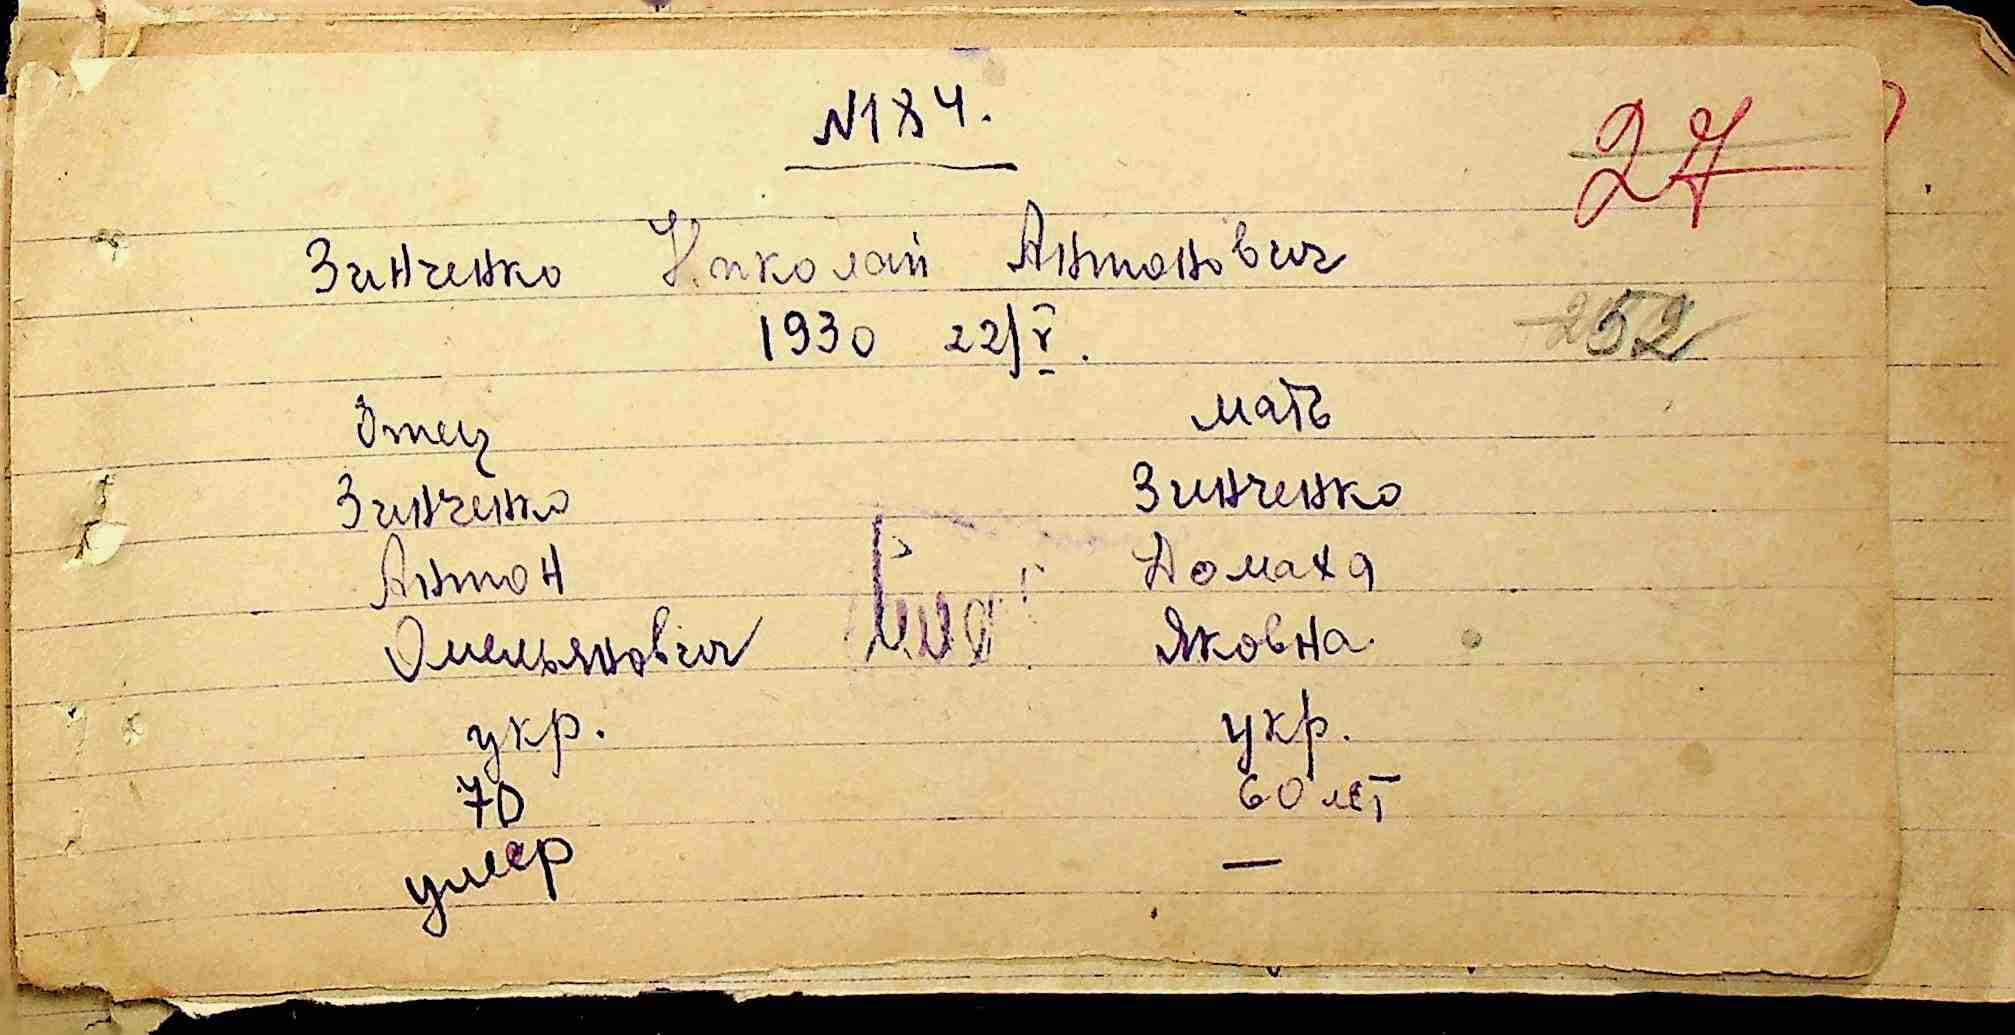 №184.
27
Зинченко Николай Антонович
1930 22/V.
252
Отец мать
Зинченко Зинченко
Антон Домаха
Омельянович Яковна
укр. укр.
70 60 лет
умер —